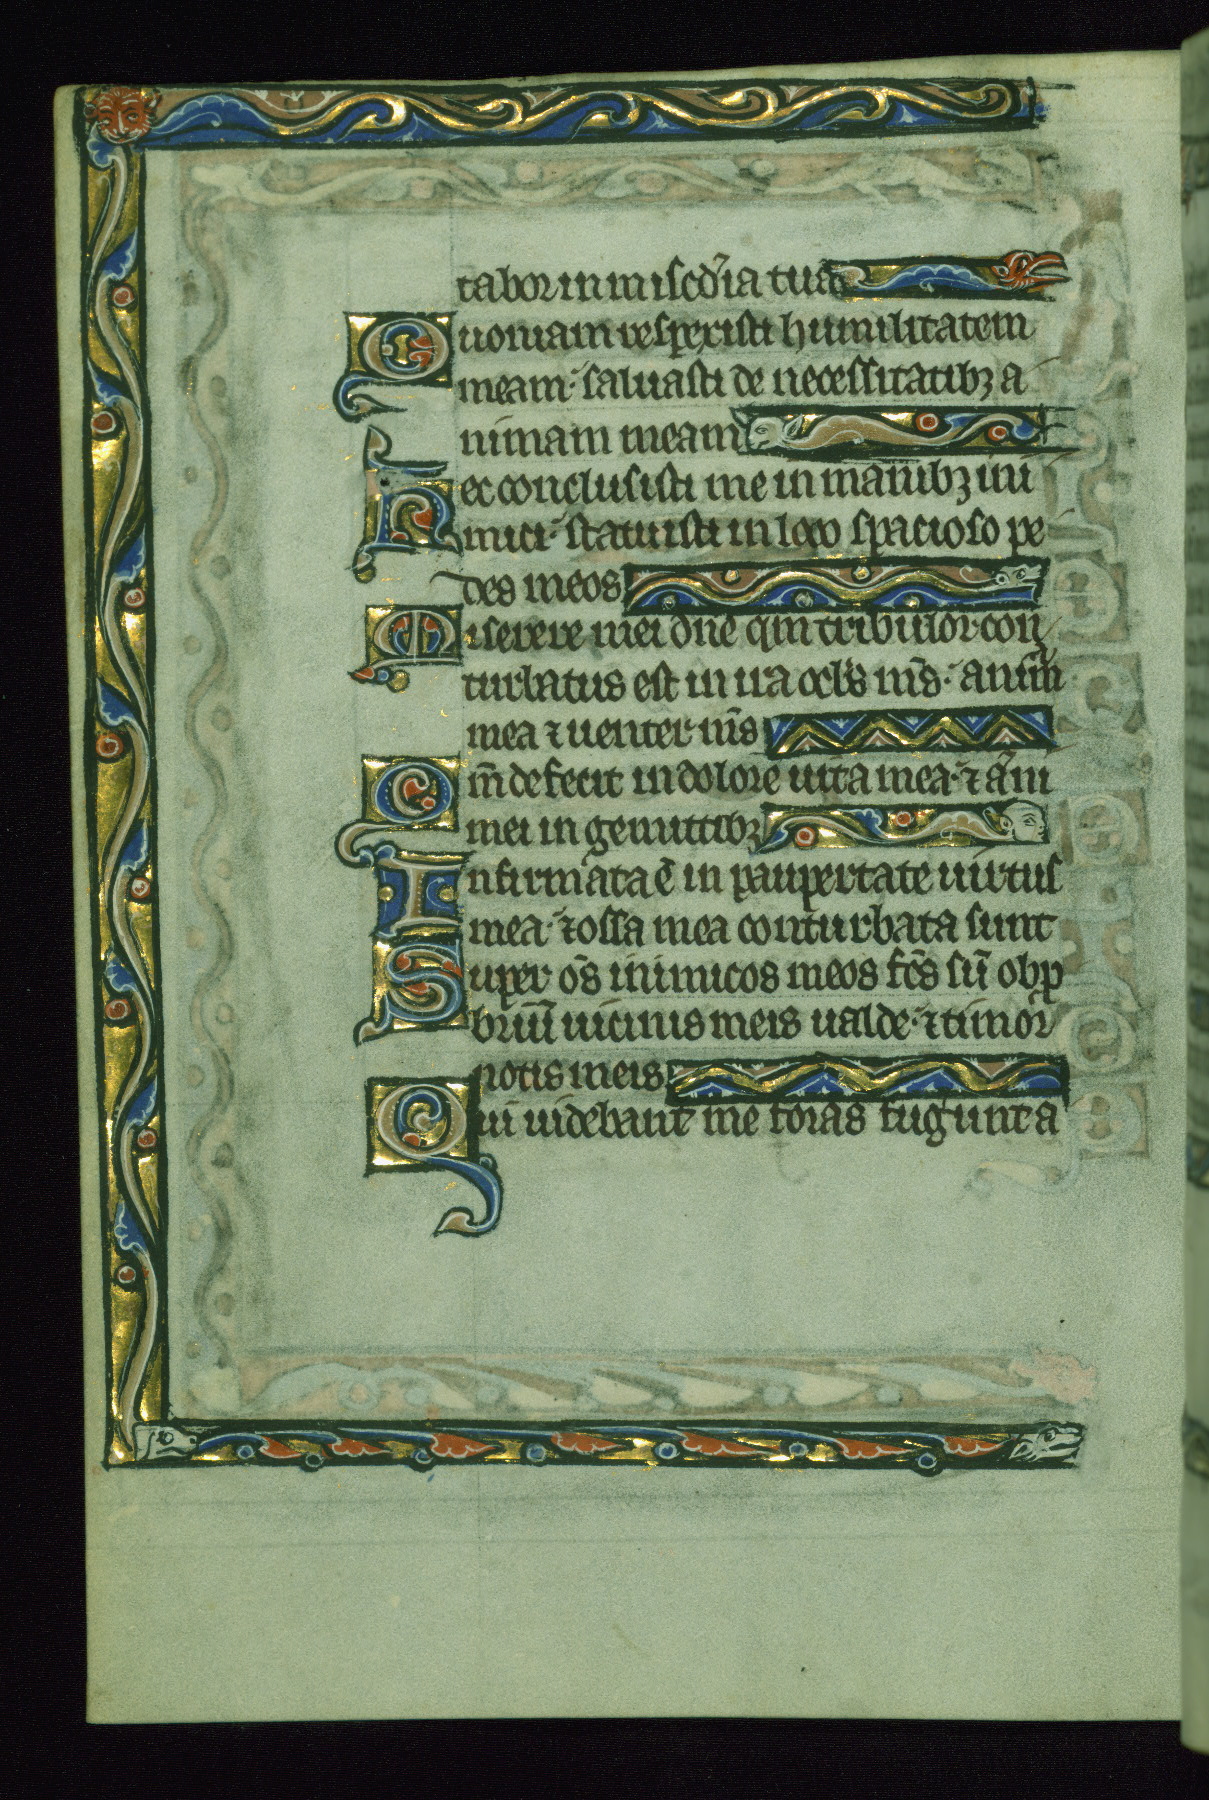 tabor in misc̄dia tua
Quoniam respexisti humilitatem
meam· saluasti de necessitatibꝫ a
nimam meam
Nec conclusisti me in manibꝫ ini
mici· statuisti in loco spacioso pe
des meos
Miserere mei dn̄e qm̄ tribulor con
turbatus est in ira oclr̄s m̄s· anim̄
mea ⁊ uenter m̄s
Qm̄ defecit in dolore uita mea· ⁊ ani
mei in gemittibꝫ
Infirmata ē in paupertate uirtus
mea· ⁊ ossa mea conturbata sunt
Super om̄s inimicos meos fc̄s sū obp
briū uicinis meis ualde· ⁊ timor
notis meis
Qui uidebant me foras fugunt a